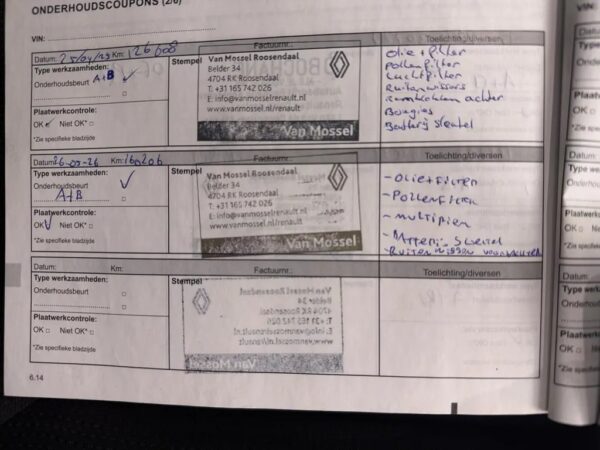 ONDERHOUDSCOUPONS (2/6)
VIN:
Datum: Km: 126 008 Factuurnr.: Toelichting/diversen
Type werkzaamheden:
Onderhoudsbeurt A+B
Plaatwerkcontrole:
OK Niet OK*
*Zie specifieke bladzijde
Stempel
Van Mossel Roosendaal
Belder 34
4704 RK Roosendaal
T: +31 165 742 026
E: info@vanmosselrenault.nl
www.vanmossel.nl/renault
Van Mossel
Olie + filter
Pollenfilter
Luchtfilter
Ruitenwissers
Remblokken achter
Bougies
Batterij sleutel
Datum: 26-03-26 Km: Factuurnr.: Toelichting/diversen
Type werkzaamheden:
Onderhoudsbeurt
A+B
Plaatwerkcontrole:
OK Niet OK*
*Zie specifieke bladzijde
Stempel
Van Mossel Roosendaal
Belder 34
4704 RK Roosendaal
T: +31 165 742 026
E: info@vanmosselrenault.nl
www.vanmossel.nl/renault
Van Mossel
- Olie + Filter
- Pollenfilter
- Multiriem
- Batterij Sleutel
- Ruitenwissers
Datum: Km: Factuurnr.: Toelichting/diversen
Type werkzaamheden:
Onderhoudsbeurt
Plaatwerkcontrole:
OK Niet OK*
*Zie specifieke bladzijde
Stempel
Van Mossel Roosendaal
Belder 34
4704 RK Roosendaal
T: +31 165 742 026
E: info@vanmosselrenault.nl
www.vanmossel.nl/renault
Van Mossel
6.14
VIN:
Datum:
Type
Onderh
Plaatwe
OK
*Zie spec
Datum:
Type werk
Onderhoud
Plaatwerk
OK
*Zie specif
Datum:
Type werk
Onderhoud
Plaatwerk
OK
*Zie specifie